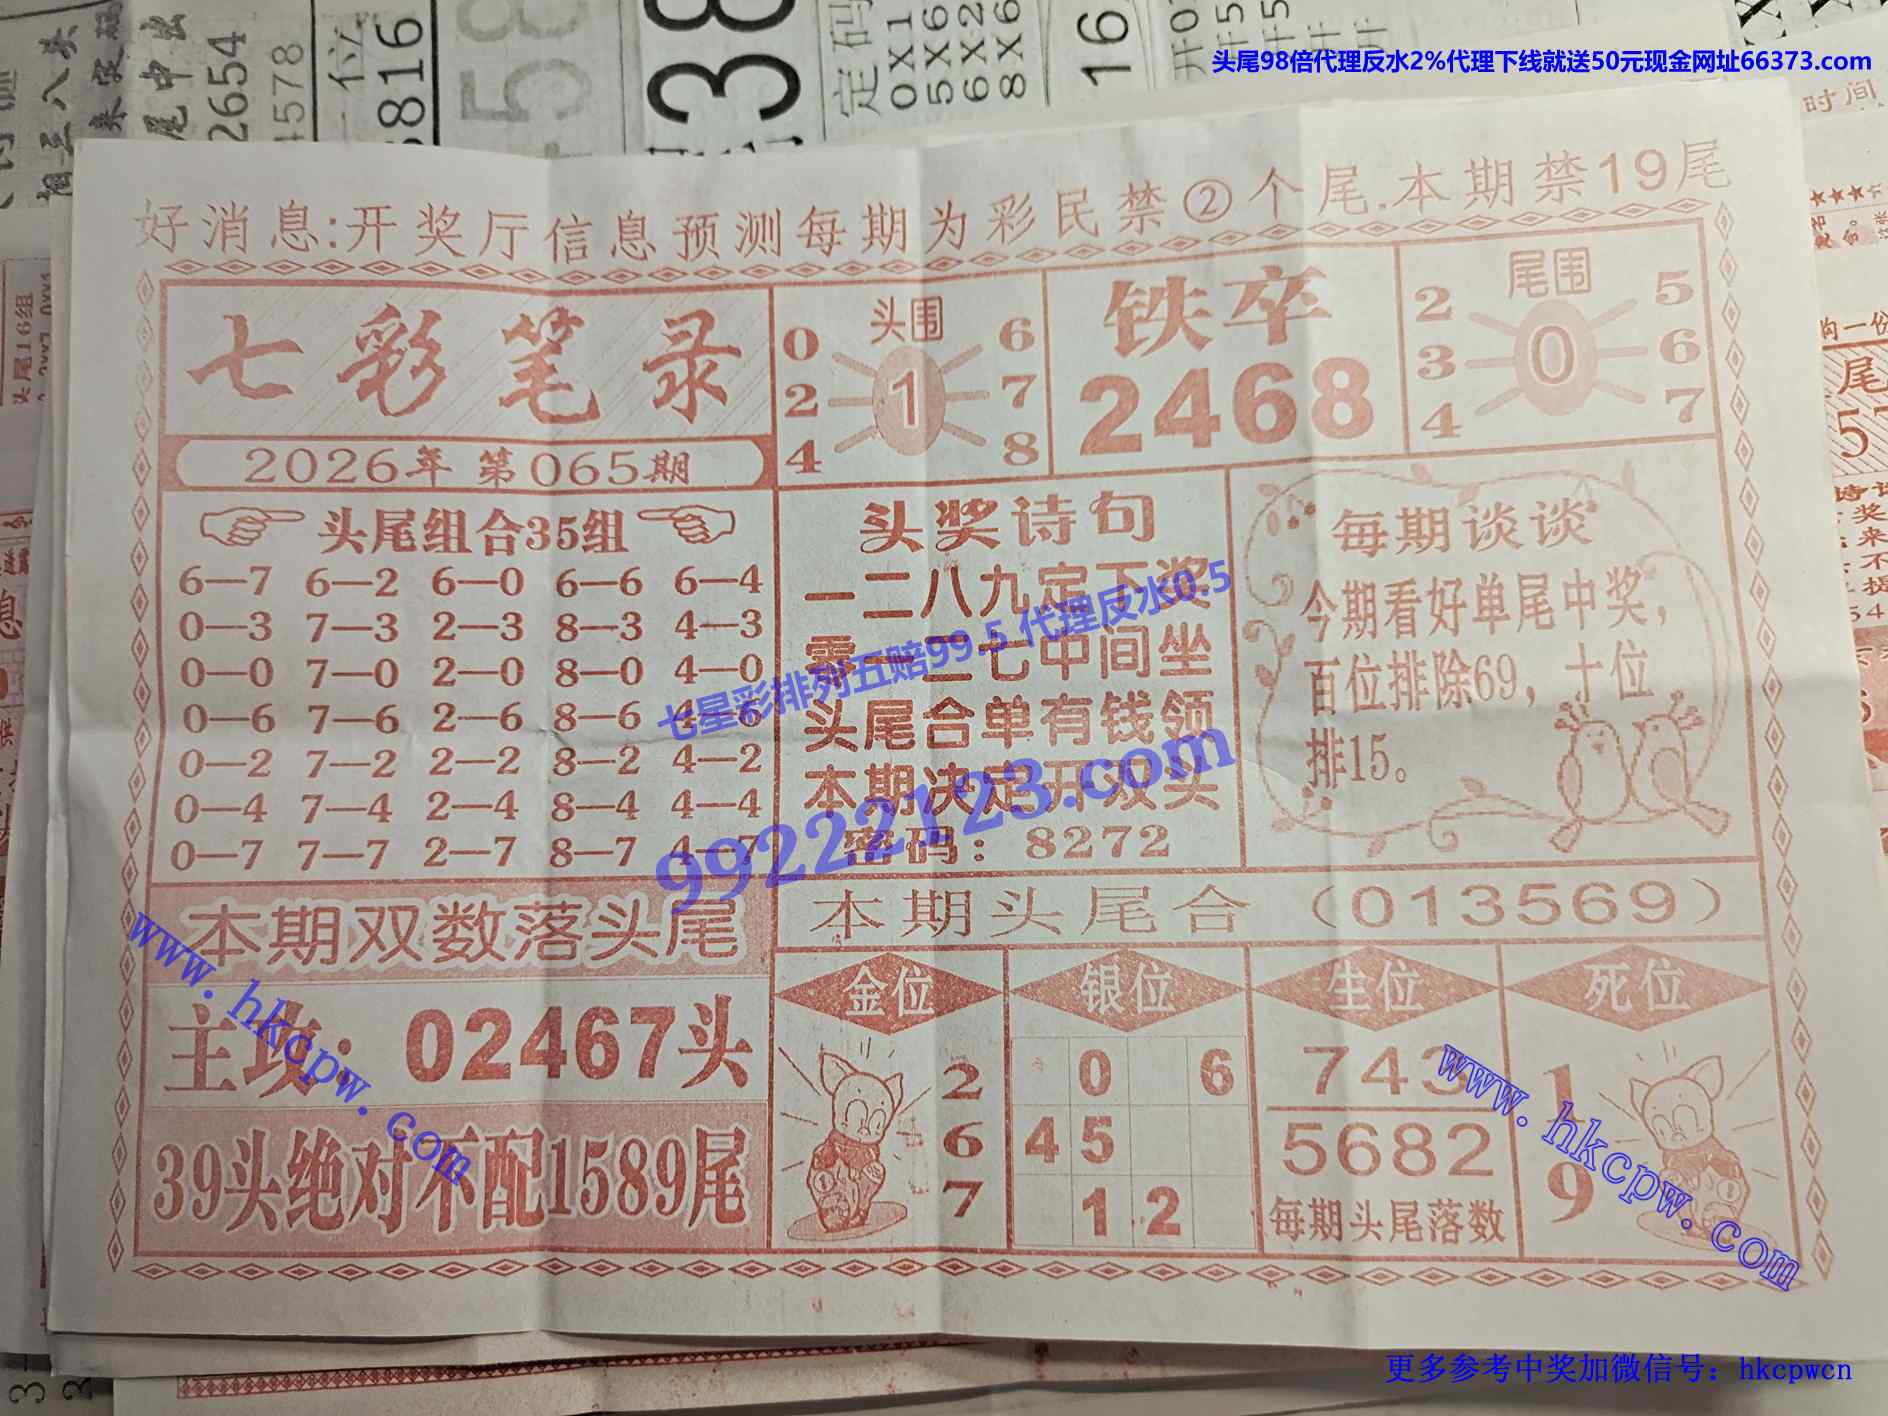 头尾98倍代理反水2%代理下线就送50元现金网址66373.com
好消息:开奖厅信息预测每期为彩民禁②个尾.本期禁19尾
七彩笔录
2026年 第065期
头围
0 6
2 1 7
4 8
铁卒
2468
尾围
2 5
3 0 6
4 7
头尾组合35组
6—7 6—2 6—0 6—6 6—4
0—3 7—3 2—3 8—3 4—3
0—0 7—0 2—0 8—0 4—0
0—6 7—6 2—6 8—6 4—6
0—2 7—2 2—2 8—2 4—2
0—4 7—4 2—4 8—4 4—4
0—7 7—7 2—7 8—7 4—7
头奖诗句
一二八九定下奖
零一二七中间坐
头尾合单有钱领
本期决定开双头
密码：8272
每期谈谈
今期看好单尾中奖，
百位排除69，十位
排15。
七星彩排列五赔99.5 代理反水0.5
99222123.com
本期双数落头尾
主攻：02467头
39头绝对不配1589尾
本期头尾合（013569）
金位
2
6
7
银位
0 6
4 5
1 2
生位
743
5682
每期头尾落数
死位
1
9
www.hkcpw.com
www.hkcpw.com
更多参考中奖加微信号：hkcpwcn
2654
4578
6816
定码
0X1
5X6
6X2
8X6
16
时间
头尾16组